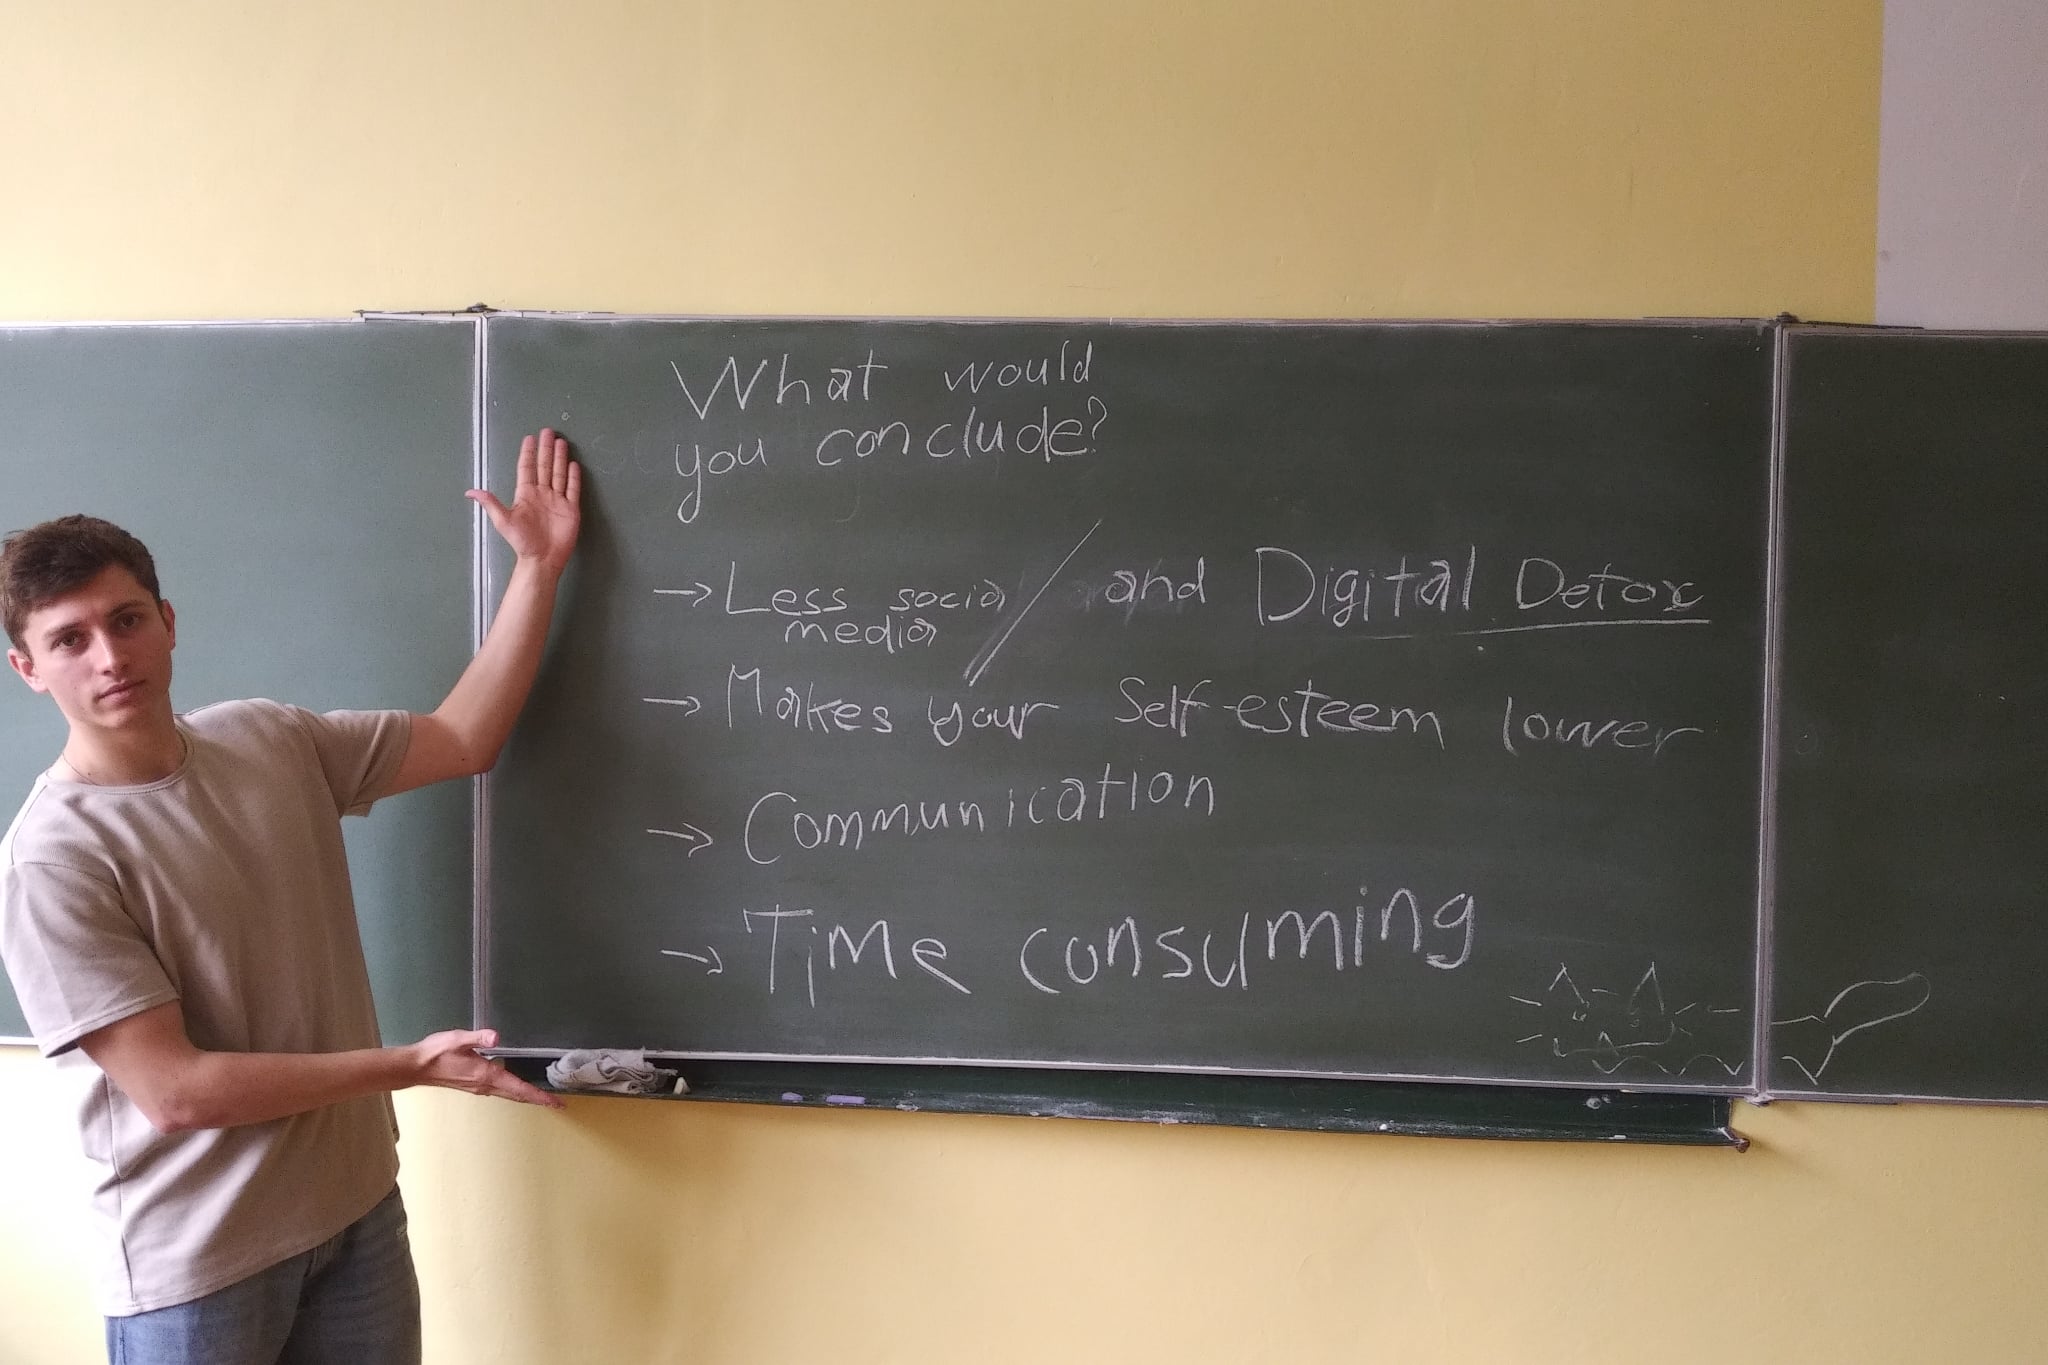 What would
you conclude?
→ Less social / and Digital Detox
media
→ Makes your Self-esteem lower
→ Communication
→ Time consuming